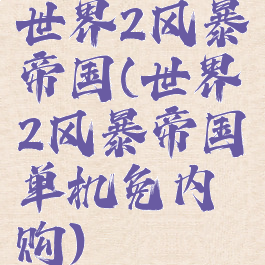 世界2风暴
帝国(世界
2风暴帝国
单机免内
购)